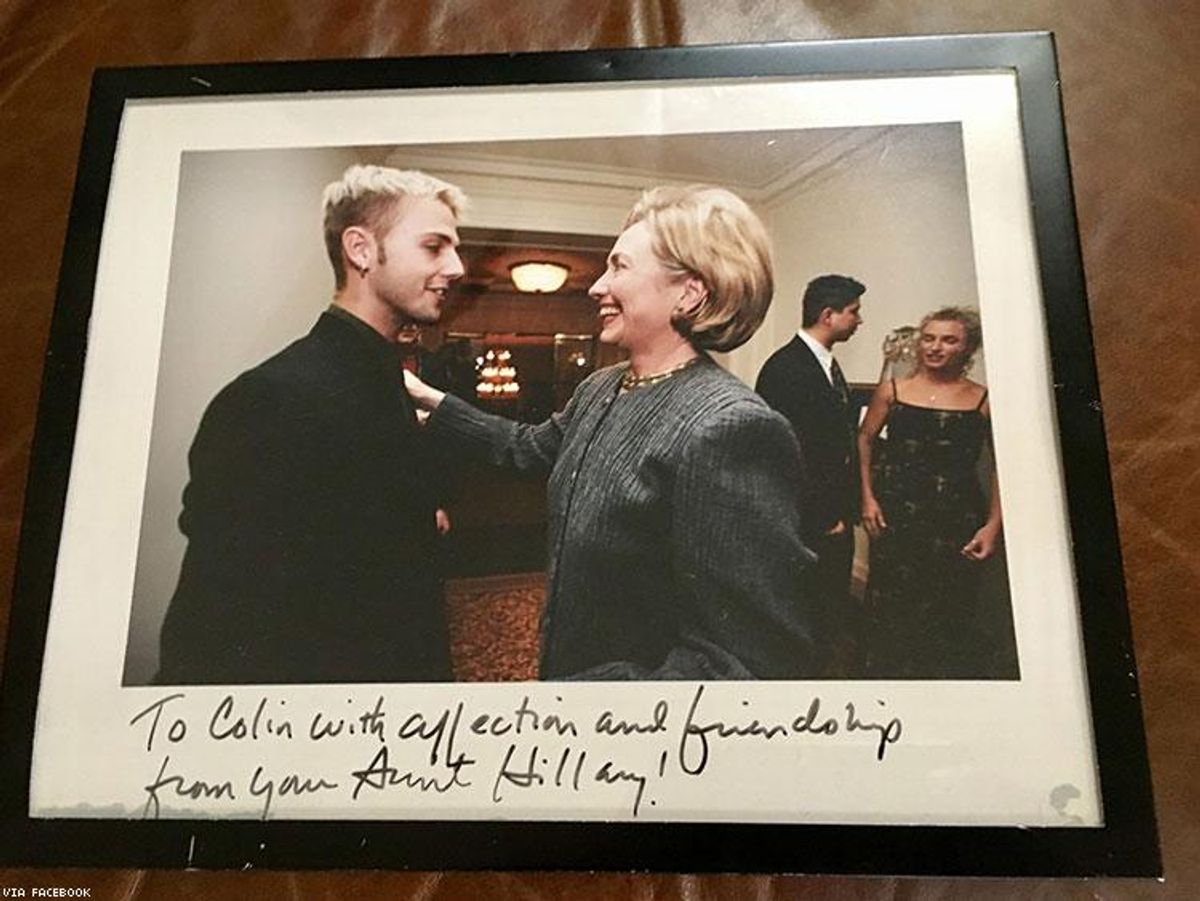 To Colin with affection and friendship
from your Aunt Hillary!
VIA FACEBOOK